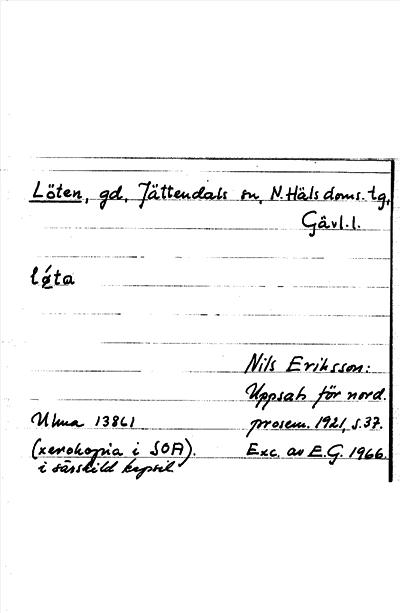 Löten, gd, Jättendals sn, N. Häls doms. tg,
Gävl. l.
lǿta
Nils Eriksson:
Uppsats för nord.
Ulma 13861 prosem. 1921, s. 37.
(xerokopia i SOA). Exc. av E.G. 1966.
i särskild kapsel